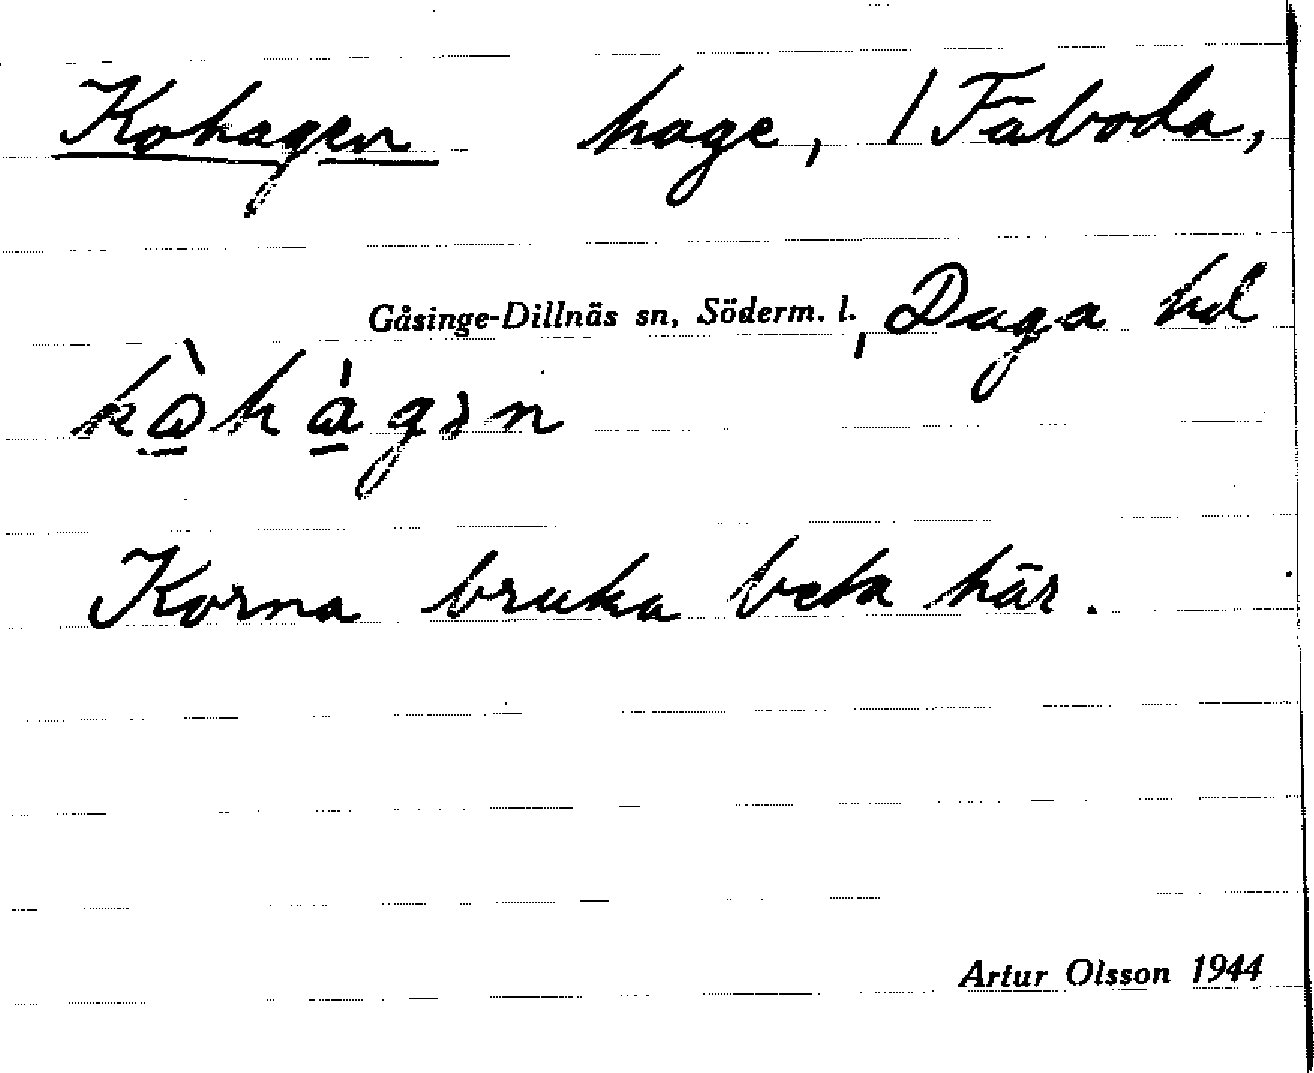 Kohagen hage, / Fäboda,
Gåsinge-Dillnäs sn, Söderm. l., Daga hd
Korna bruka beta här.
Artur Olsson 1944